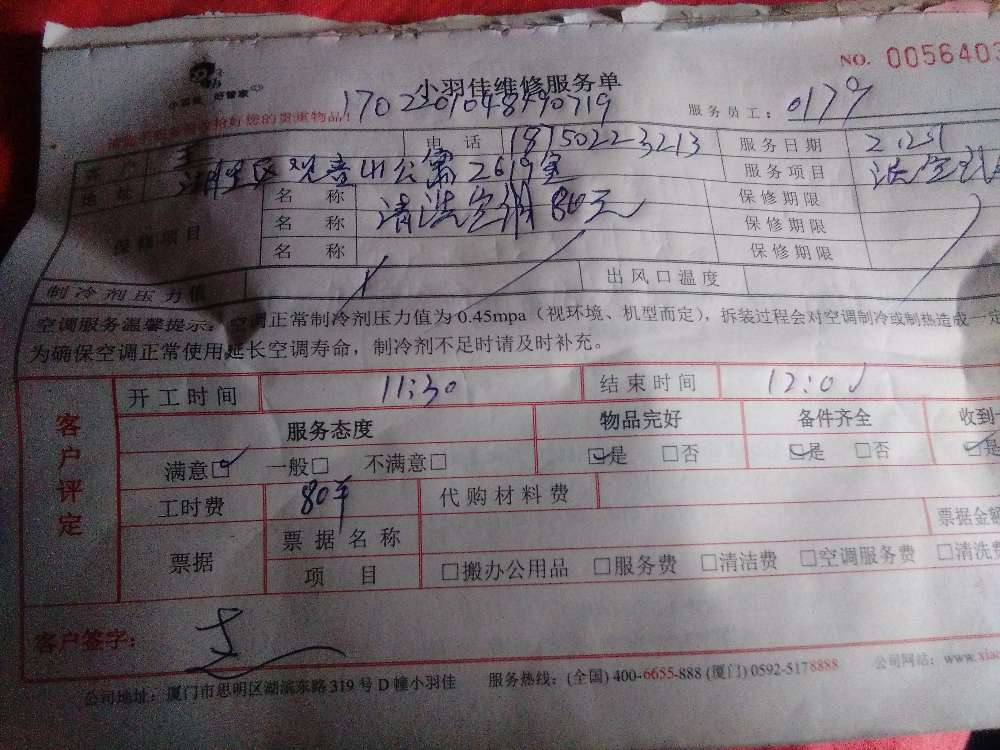 NO. 0056403
小羽佳维修服务单
小羽佳 好管家
1702201048490719
服务员工: 0179
电话 18750223213 服务日期 2.21
地址 湖里区观音山公寓2619室 服务项目 洗空调
保修项目 名称 清洗空调80元 保修期限
名称 保修期限
名称 保修期限
制冷剂压力值 出风口温度
空调服务温馨提示: 空调正常制冷剂压力值为0.45mpa（视环境、机型而定），拆装过程会对空调制冷或制热造成一定
为确保空调正常使用延长空调寿命，制冷剂不足时请及时补充。
客户评定
开工时间 11:30 结束时间 12:00
服务态度 物品完好 备件齐全 收到
满意☑ 一般□ 不满意□ ☑是 □否 ☑是 □否 ☑是
工时费 80元 代购材料费
票据 票据名称 票据金额
项目 □搬办公用品 □服务费 □清洁费 □空调服务费 □清洗费
客户签字: 王
公司地址: 厦门市思明区湖滨东路319号D幢小羽佳 服务热线: (全国) 400-6655-888 (厦门) 0592-5178888 公司网站: www.xia